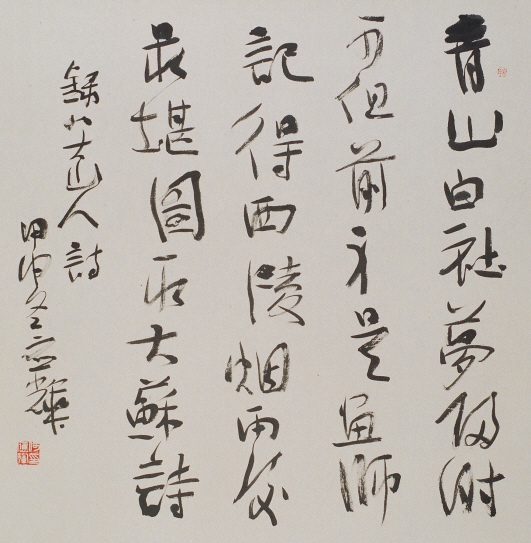 青山白社夢歸時
可但前身是畫師
記得西陵烟雨後
最堪圖取大蘇詩
錄八大山人詩
甲申冬應輝